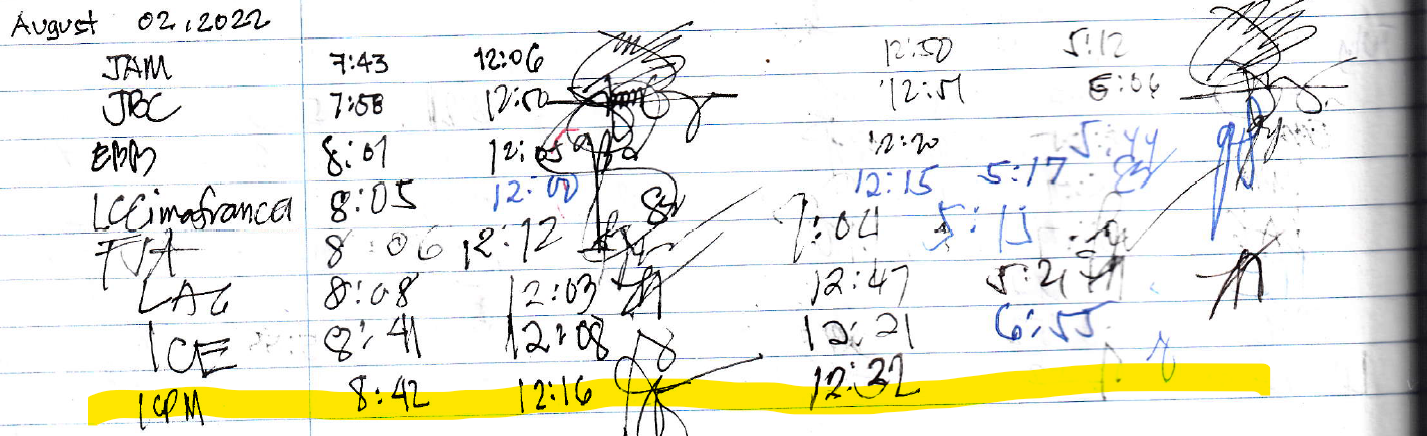 August 02, 2022
JAM 7:43 12:06 12:50 5:12
JBC 7:58 12:50 12:51 5:06
EBB 8:01 12:05 12:20 5:44
LCCimafranca 8:05 12:00 12:15 5:17
FJA 8:06 12:12 1:04 5:15
LAG 8:08 12:03 12:47
ICE 8:41 12:08 12:21 6:55
ICPM 8:42 12:16 12:32